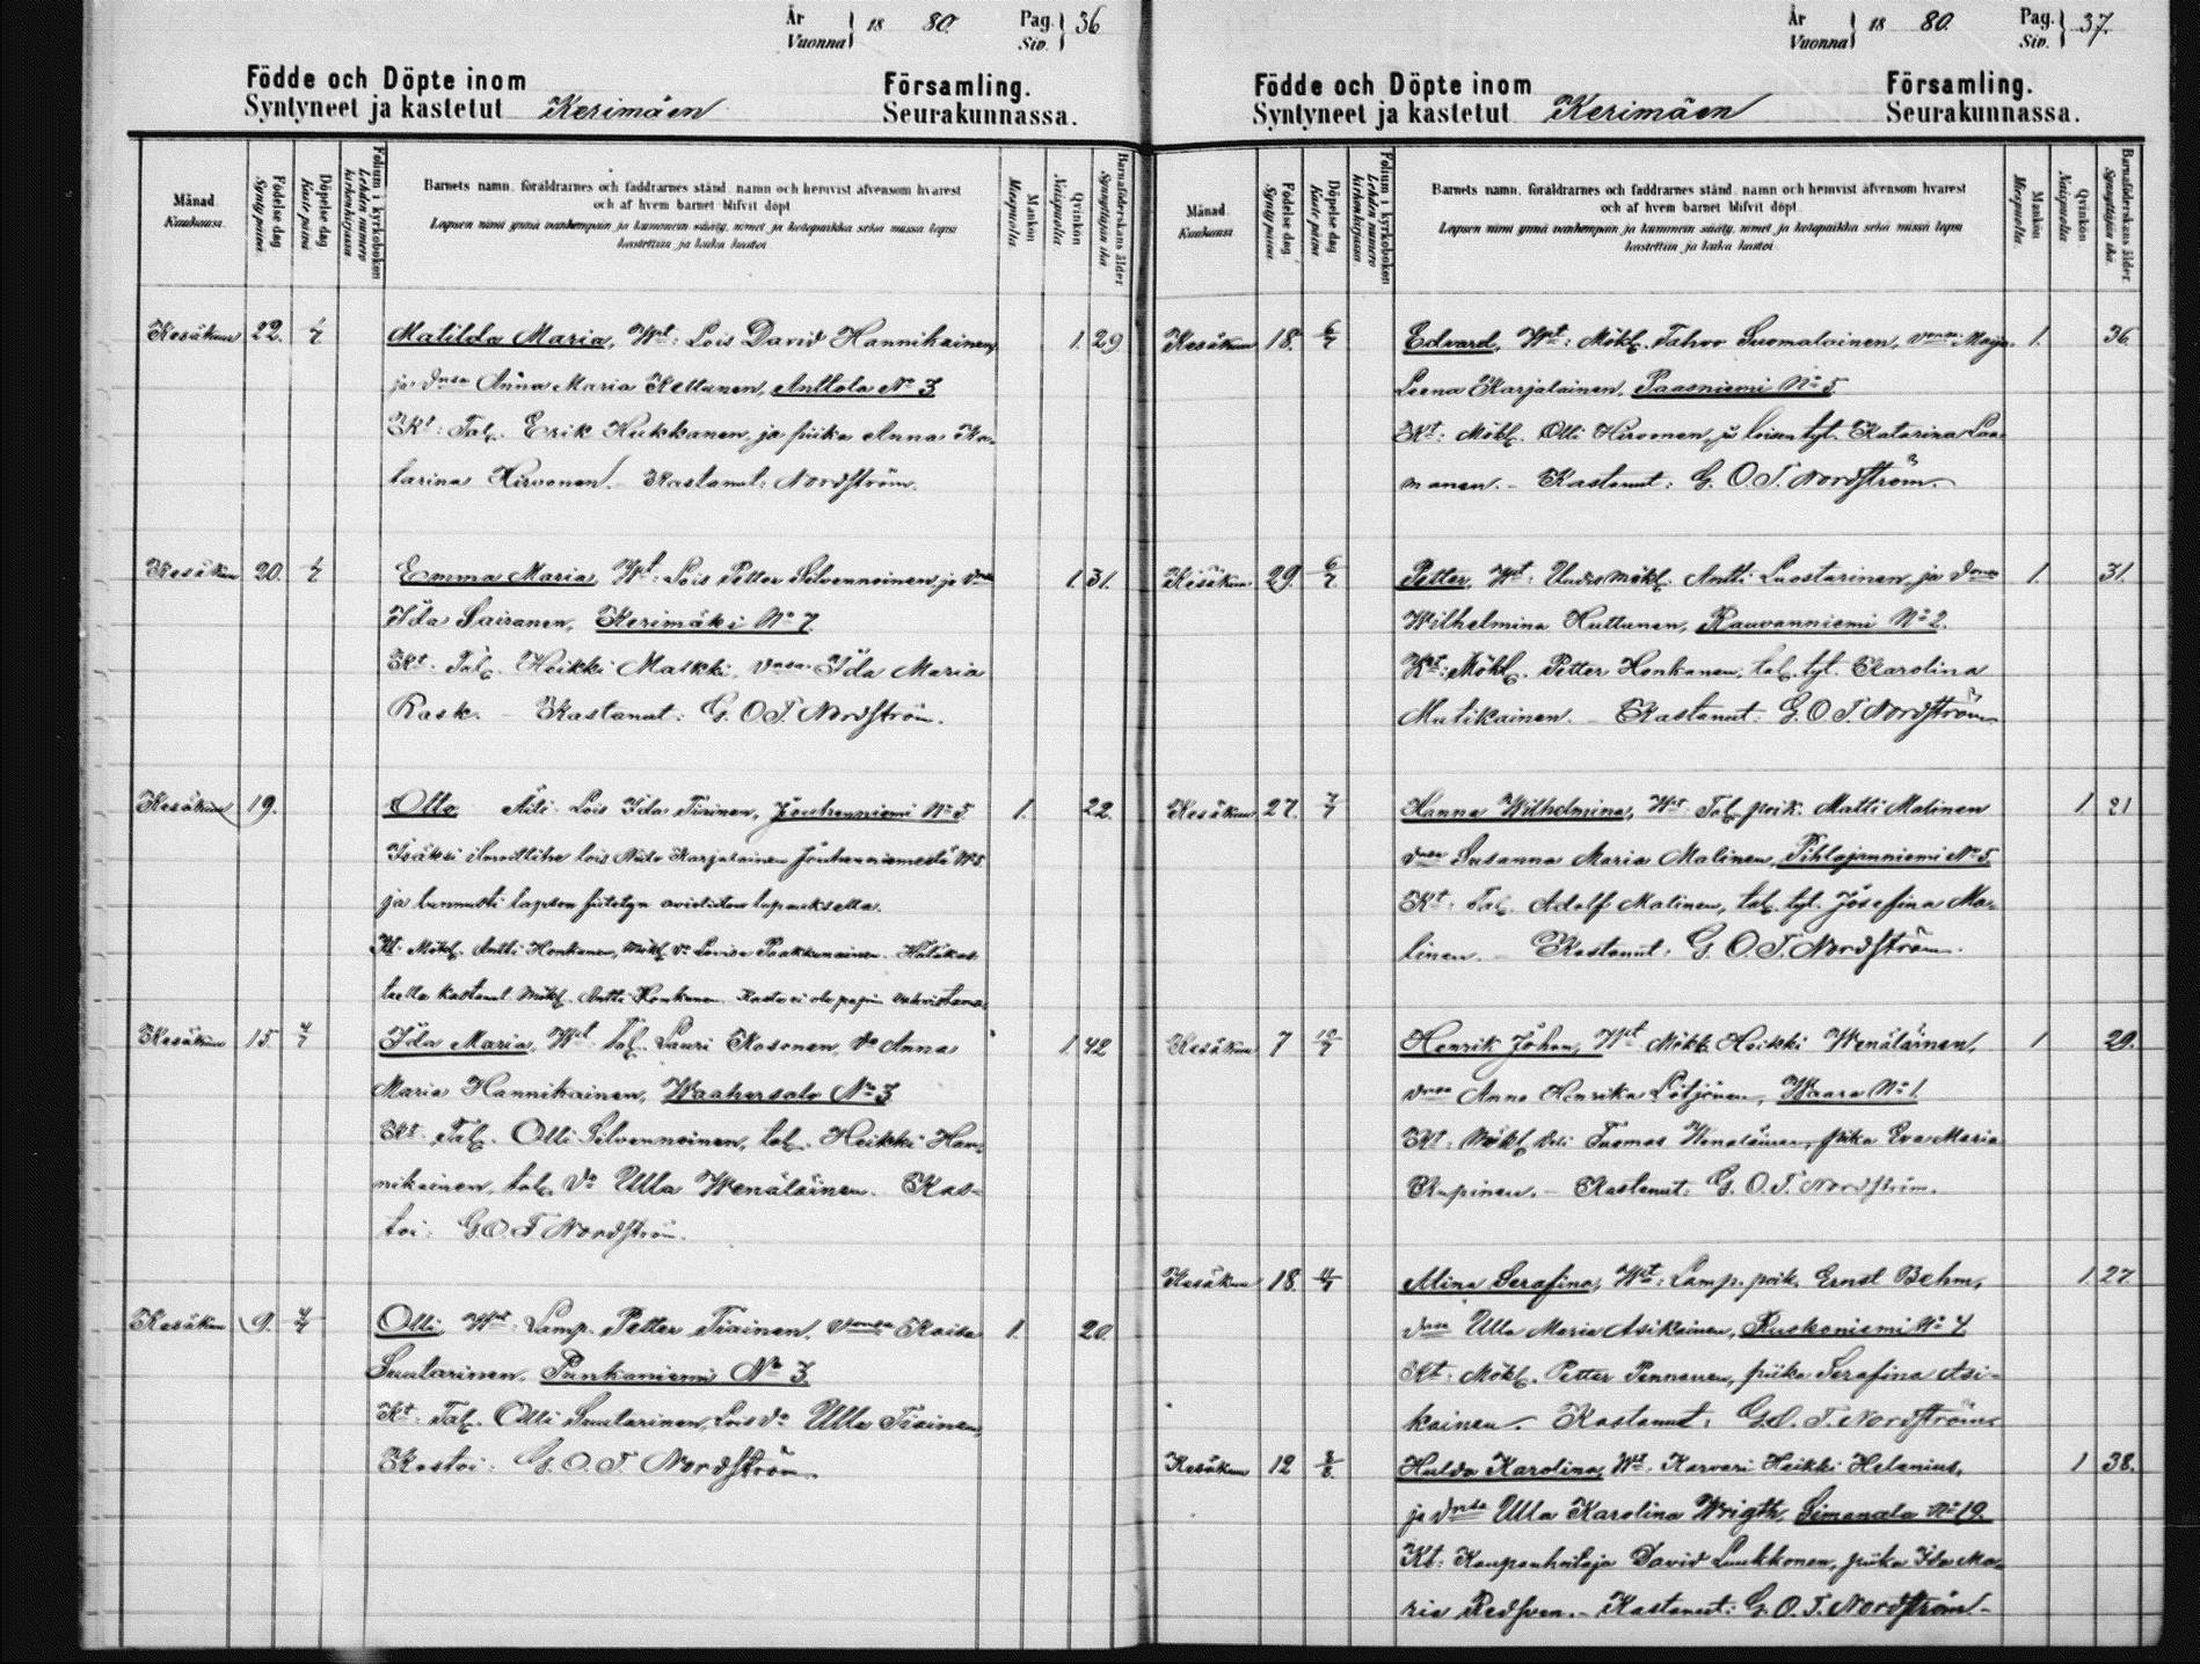 År
Vuonna } 18 80. Pag.
Siv. } 36
Födde och Döpte inom Församling.
Syntyneet ja kastetut Kerimäen Seurakunnassa.
Månad
Kuukausi.
Födelse dag
Synty päivä
Döpelse dag
Kaste päivä
Folium i kyrkoboken
Lehden numero
kirkonkirjassa
Barnets namn, föräldrarnes och faddrarnes stånd, namn och hemvist äfvensom hvarest
och af hvem barnet blifvit döpt
Lapsen nimi ynnä vanhempain ja kummein sääty, nimet ja kotopaikka sekä missä lapsi
kastettiin ja kuka kastoi
Mankön
Miespuolia
Qvinkön
Naispuolia
Barnaföderskans ålder
Synnyttäjän ikä
Kesäkuu 22. Matilda Maria, Wt: Lois David Hannikainen 1. 29
ja vmsa Anna Maria Kettunen, Anttola No 3
Kt: Tal. Erik Hukkanen, ja piika Anna Ka-
tarina Hirvonen. Kastanut: Nordström.
Kesäkuu 20. Emma Maria, Wt: Lois Petter Silvennoinen ja vmsa 1. 31.
Ida Sairanen, Kerimäki No 7.
Kt. Tal. Heikki Maskki, vmsa Ida Maria
Rask. - Kastanut: G. O. T. Nordström.
Kesäkuu 19. Otto Äiti Lois Ida Tiainen, Jouhenniemi No 5 1. 22.
Isäksi ilmoitettu lois Karjalainen Jouhenniemestä No 5
ja tunnusti lapsen
Kt. Mökl. Antti Honkanen, mökl. vo Lovisa Paakkunainen. Hätäkas-
teella kastanut Mökl. Antti Honkanen. Kaste ei ole papin vahvistama.
Kesäkuu 15. 4/7 Ida Maria, Wt. Tal. Lauri Kosonen, vo Anna 1. 42
Maria Hannikainen, Waahersalo No 3
Kt. Tal. Olli Silvennoinen, tal. Heikki Han-
nikainen, tal. vo Ulla Wenäläinen. Kas-
toi: G. O. T. Nordström.
Kesäkuu 9. 4/7 Olli, Wt: Lamp. Petter Tiainen, vmonsa Kaisa 1. 20.
Suutarinen, Punkaniemi No 3.
Kt. Tal. Olli Suutarinen, Lois vo Ulla Tiainen,
Kastoi: G. O. T. Nordström.
År
Vuonna } 18 80. Pag.
Siv. } 37.
Födde och Döpte inom Församling.
Syntyneet ja kastetut Kerimäen Seurakunnassa.
Månad.
Kuukausi.
Födelse dag
Synty päivä
Döpelse dag
Kaste päivä
Folium i kyrkoboken
Lehden numero
kirkonkirjassa
Barnets namn, föräldrarnes och faddrarnes stånd, namn och hemvist äfvensom hvarest
och af hvem barnet blifvit döpt.
Lapsen nimi ynnä vanhempain ja kummein sääty, nimet ja kotopaikka sekä missä lapsi
kastettiin ja kuka kastoi.
Mankön
Miespuolia.
Qvinkön
Naispuolia
Barnaföderskans ålder
Synnyttäjän ikä.
Kesäkuu 18. 6/7 Edvard, Wt: Mökl. Tahvo Suomalainen, vmsa Maija 1. 36
Leena Karjalainen, Paasniemi No 5
Kt: Mökl. Olli Hirvonen, ja loisen tyt. Katarina Laa-
manen. - Kastanut: G. O. T. Nordström.
Kesäkuu 29. 6/7 Petter, Wt: Uudismökl. Antti Luostarinen, ja vmsa 1. 31.
Wilhelmina Huttunen, Rauvanniemi No 2.
Kt: Mökl. Petter Honkanen, tal. tyt. Karolina
Mutikainen. - Kastanut: G. O. T. Nordström
Kesäkuu 27. 7/7 Hanna Wilhelmina, Wt Tal. poik. Matti Malinen 1. 21
vmsa Susanna Maria Malinen, Pihlajanniemi No 5
Kt. Tal. Adolf Malinen, tal. tyt. Josefina Ma-
linen. - Kastanut: G. O. T. Nordström.
Kesäkuu 7 10/7 Henrik Johan, Wt Mökl. Heikki Wenäläinen, 1 29.
vmsa Anna Henrika Lötjönen, Waara No 1.
Kt: Mökl. veli Tuomas Wenäläinen, piika Eva Maria
Rupinen. - Kastanut: G. O. T. Nordström.
Kesäkuu 18. 11/7 Mina Serafina, Wt: Lamp. poik. Ernst Behm, 1. 27.
vmsa Ulla Maria Asikainen, Ruokoniemi No 4
Kt: Mökl. Petter Pennanen, piika Serafina Asi-
kainen. Kastanut: G. O. T. Nordström
Kesäkuu 12 8/8. Hulda Karolina, Wt. Karvari Heikki Helenius, 1 38.
ja vmsa Ulla Karolina Wrigth, Simanala No 19.
Kt: Kaupanhoitaja David Luukkonen, piika Ida Ma-
ria Redsven. - Kastanut: G. O. T. Nordström -